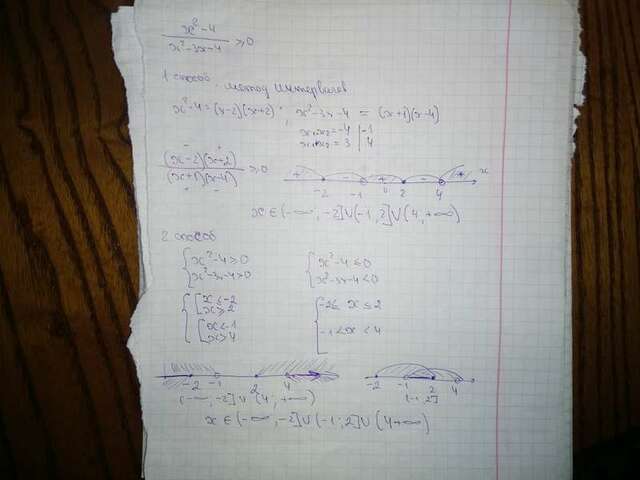 x²-4
x²-3x-4 ≥0
1 способ. метод интервалов
x²-4=(x-2)(x+2); x²-3x-4 = (x+1)(x-4)
x₁·x₂=-4 | -1
x₁+x₂=3 | 4
(x-2)(x+2)
(x+1)(x-4) ≥0
+ - + - + x
-2 -1 2 4
x∈(-∞;-2]∪(-1;2]∪(4;+∞)
2 способ
{x²-4≥0 {x²-4≤0
x²-3x-4>0 x²-3x-4<0
{[x≤-2 {-2≤ x ≤2
x≥2
[x<-1 -1<x<4
x>4
-2 -1 2 4 -2 -1 2 4
(-∞;-2]∪(4;+∞) (-1;2]
x∈(-∞;-2]∪(-1;2]∪(4+∞)